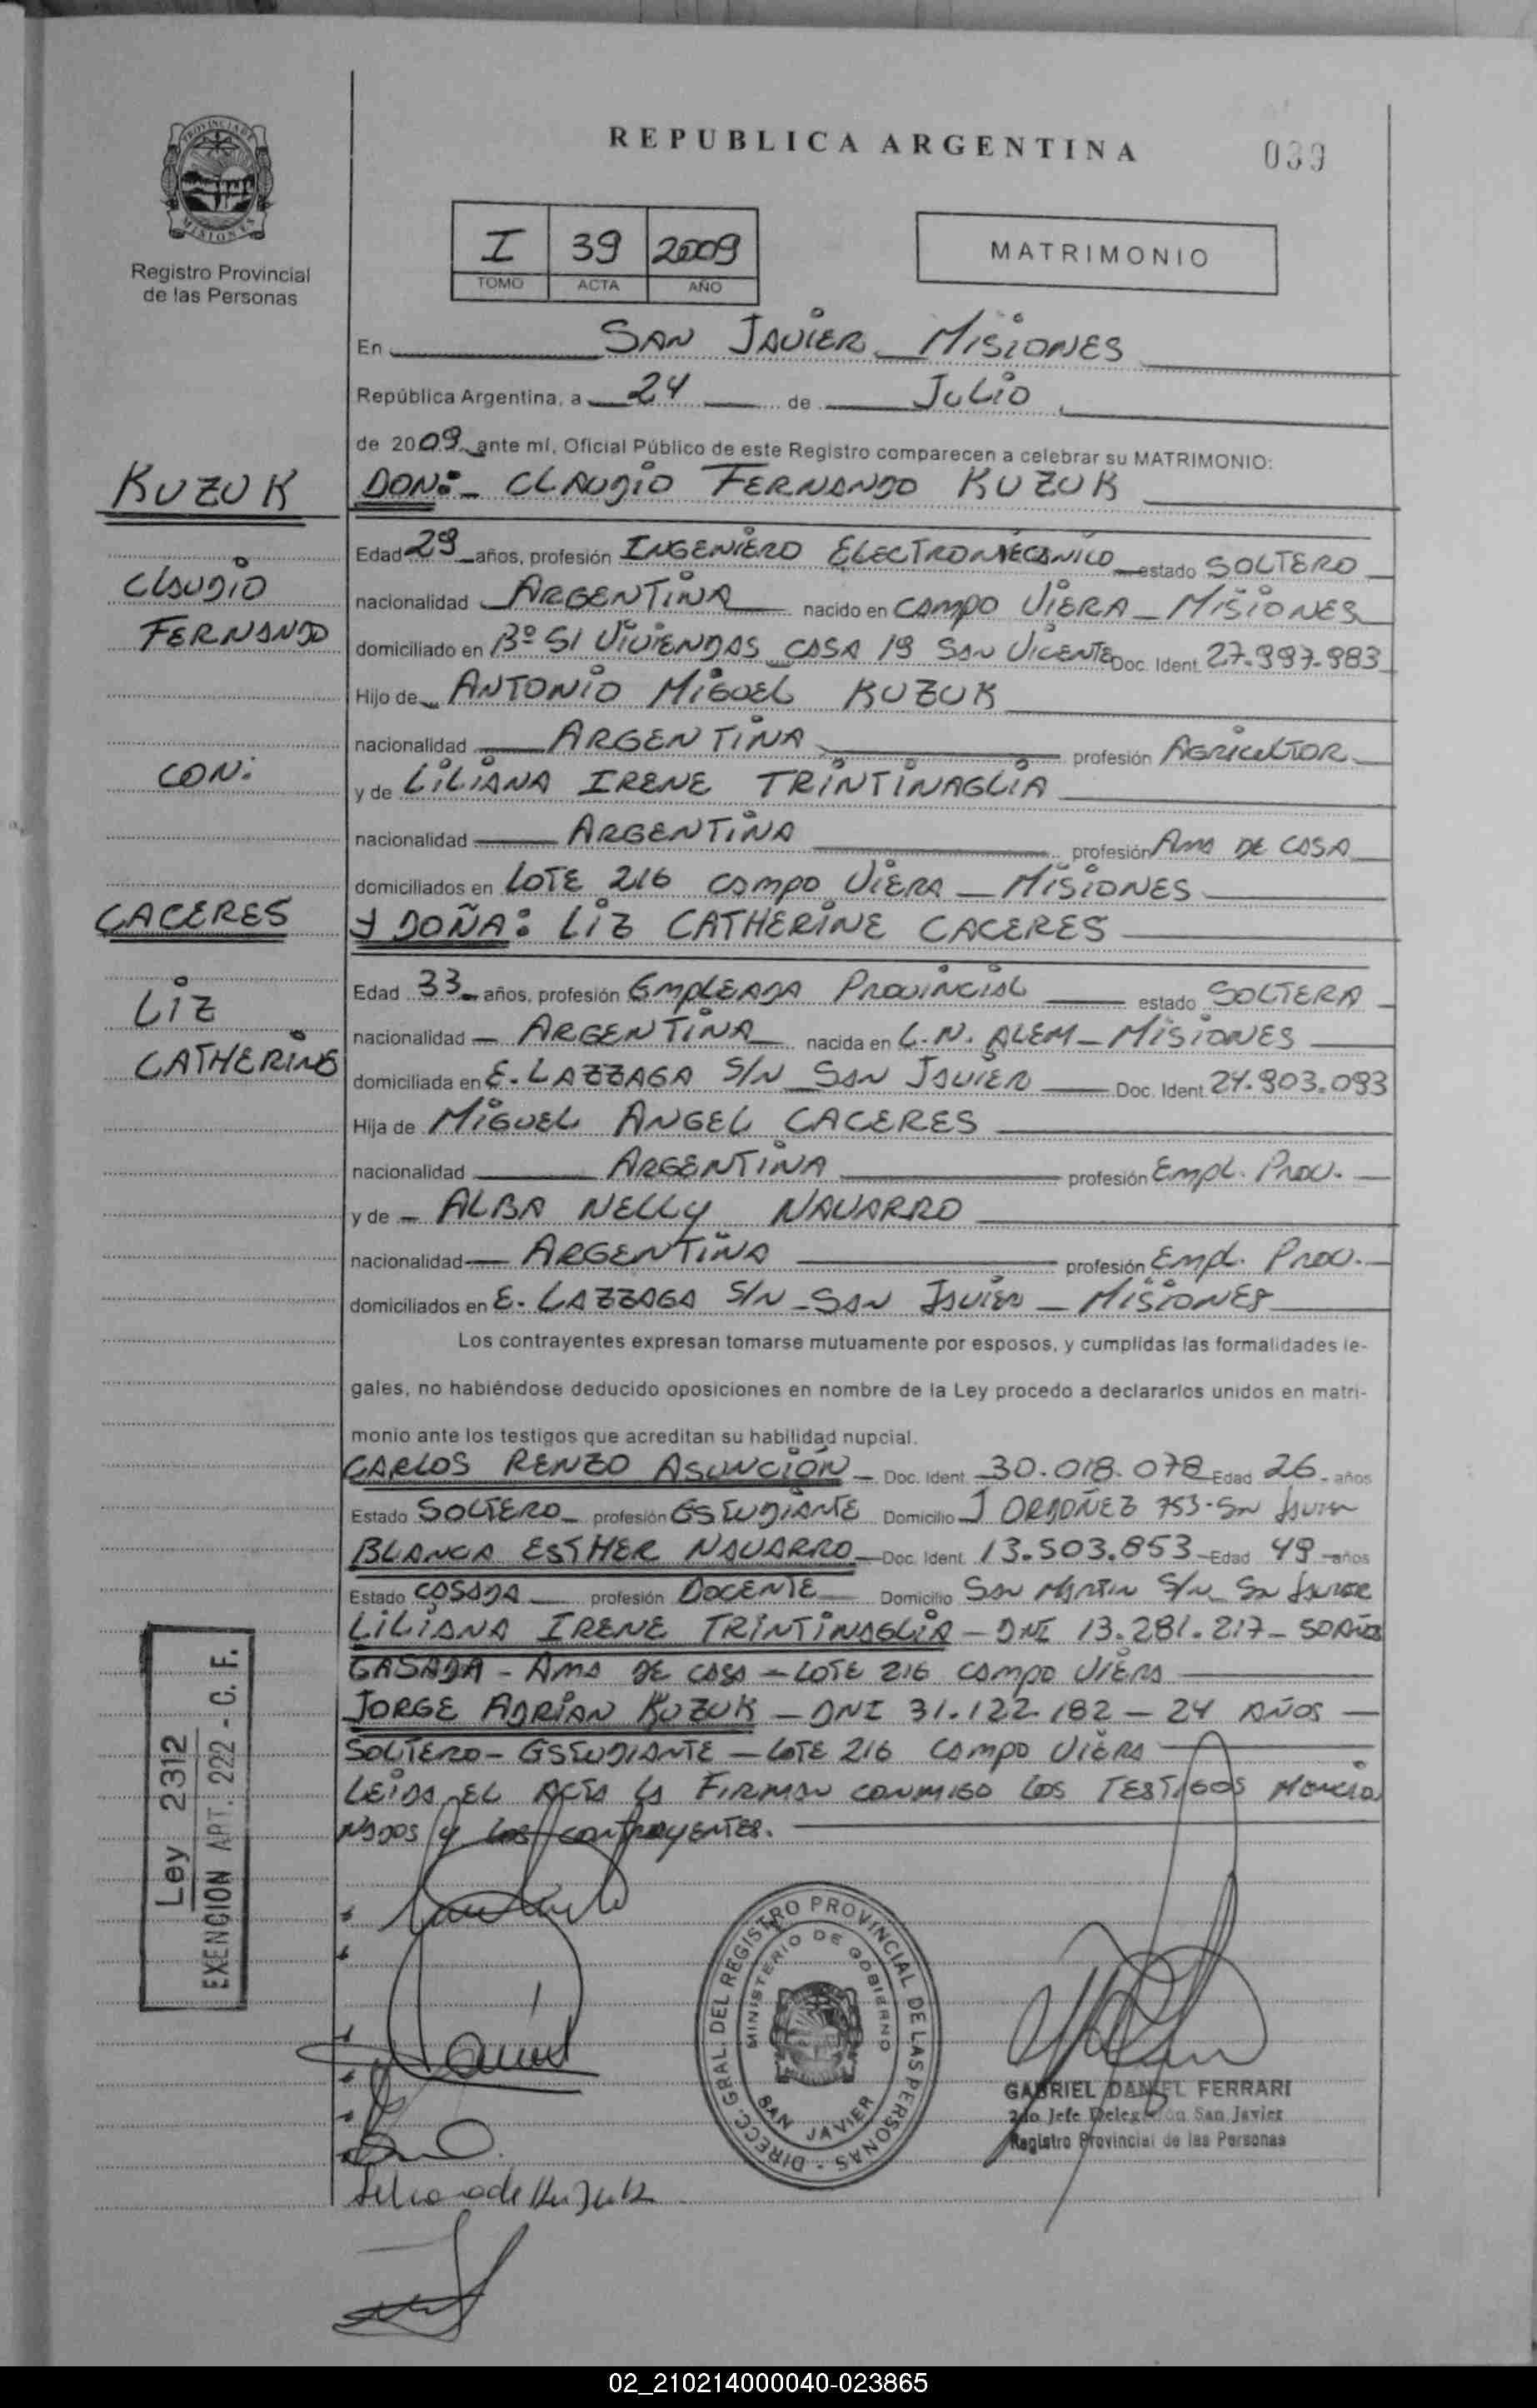 REPUBLICA ARGENTINA
039
PROVINCIA DE MISIONES
Registro Provincial
de las Personas
I 39 2009
TOMO ACTA AÑO
MATRIMONIO
En SAN JAVIER MISIONES
República Argentina, a 24 de JULIO
de 2009 ante mí, Oficial Público de este Registro comparecen a celebrar su MATRIMONIO:
KUZUK
DON:- CLAUDIO FERNANDO KUZUK
Edad 29 años, profesión INGENIERO ELECTROMECANICO estado SOLTERO
CLAUDIO
nacionalidad ARGENTINA nacido en CAMPO VIERA - MISIONES
FERNANDO
domiciliado en Bº 51 VIVIENDAS CASA 19 SAN VICENTE Doc. Ident. 27.997.983
Hijo de ANTONIO MIGUEL KUZUK
nacionalidad ARGENTINA profesión AGRICULTOR
CON:
y de LILIANA IRENE TRINTINAGLIA
nacionalidad ARGENTINA profesión AMA DE CASA
domiciliados en LOTE 216 CAMPO VIERA - MISIONES
CACERES
Y DOÑA: LIZ CATHERINE CACERES
Edad 33 años, profesión EMPLEADA PROVINCIAL estado SOLTERA
LIZ
nacionalidad - ARGENTINA nacida en L.N. ALEM - MISIONES
CATHERINE
domiciliada en E. LAZZAGA S/N SAN JAVIER Doc. Ident. 24.903.093
Hija de MIGUEL ANGEL CACERES
nacionalidad ARGENTINA profesión EMPL. PROV.
y de - ALBA NELLY NAVARRO
nacionalidad ARGENTINA profesión EMPL. PROV.
domiciliados en E. LAZZAGA S/N - SAN JAVIER - MISIONES
Los contrayentes expresan tomarse mutuamente por esposos, y cumplidas las formalidades le-
gales, no habiéndose deducido oposiciones en nombre de la Ley procedo a declararlos unidos en matri-
monio ante los testigos que acreditan su habilidad nupcial.
CARLOS RENZO ASUNCIÓN - Doc. Ident. 30.018.078 Edad 26 años
Estado SOLTERO profesión ESTUDIANTE Domicilio J ORDOÑEZ 753 - SAN JAVIER
BLANCA ESTHER NAVARRO Doc. Ident. 13.503.853 Edad 49 años
Estado CASADA profesión DOCENTE Domicilio SAN MARTIN S/N SAN JAVIER
LILIANA IRENE TRINTINAGLIA - DNI 13.281.217 - 50 AÑOS
CASADA - AMA DE CASA - LOTE 216 CAMPO VIERA
JORGE ADRIAN KUZUK - DNI 31.122.182 - 24 AÑOS
SOLTERO - ESTUDIANTE - LOTE 216 CAMPO VIERA
LEIDA EL ACTA LA FIRMAN CONMIGO LOS TESTIGOS MENCIO
NADOS Y LOS CONTRAYENTES.
Ley 2312
EXENCION ART. 222 - C. F.
DIRECC. GRAL. DEL REGISTRO PROVINCIAL DE LAS PERSONAS
MINISTERIO DE GOBIERNO
SAN JAVIER
GABRIEL DANIEL FERRARI
2do Jefe Delegación San Javier
Registro Provincial de las Personas
02_210214000040-023865